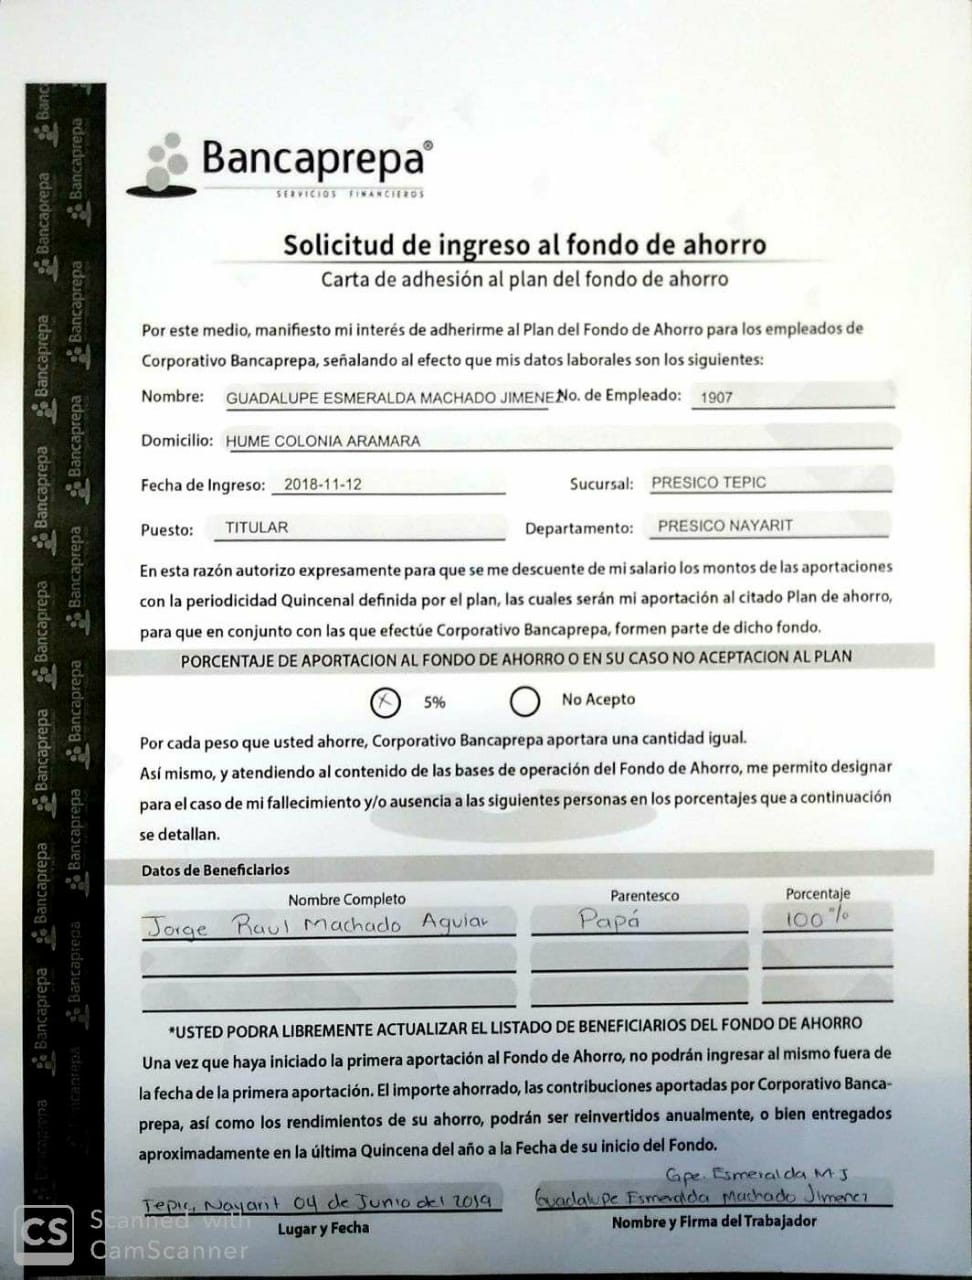 Bancaprepa®
SERVICIOS FINANCIEROS
Solicitud de ingreso al fondo de ahorro
Carta de adhesión al plan del fondo de ahorro
Por este medio, manifiesto mi interés de adherirme al Plan del Fondo de Ahorro para los empleados de
Corporativo Bancaprepa, señalando al efecto que mis datos laborales son los siguientes:
Nombre: GUADALUPE ESMERALDA MACHADO JIMENEZ No. de Empleado: 1907
Domicilio: HUME COLONIA ARAMARA
Fecha de Ingreso: 2018-11-12 Sucursal: PRESICO TEPIC
Puesto: TITULAR Departamento: PRESICO NAYARIT
En esta razón autorizo expresamente para que se me descuente de mi salario los montos de las aportaciones
con la periodicidad Quincenal definida por el plan, las cuales serán mi aportación al citado Plan de ahorro,
para que en conjunto con las que efectúe Corporativo Bancaprepa, formen parte de dicho fondo.
PORCENTAJE DE APORTACION AL FONDO DE AHORRO O EN SU CASO NO ACEPTACION AL PLAN
X 5% No Acepto
Por cada peso que usted ahorre, Corporativo Bancaprepa aportara una cantidad igual.
Así mismo, y atendiendo al contenido de las bases de operación del Fondo de Ahorro, me permito designar
para el caso de mi fallecimiento y/o ausencia a las siguientes personas en los porcentajes que a continuación
se detallan.
Datos de Beneficiarios
Nombre Completo Parentesco Porcentaje
Jorge Raul Machado Aguiar Papá 100%
*USTED PODRA LIBREMENTE ACTUALIZAR EL LISTADO DE BENEFICIARIOS DEL FONDO DE AHORRO
Una vez que haya iniciado la primera aportación al Fondo de Ahorro, no podrán ingresar al mismo fuera de
la fecha de la primera aportación. El importe ahorrado, las contribuciones aportadas por Corporativo Banca-
prepa, así como los rendimientos de su ahorro, podrán ser reinvertidos anualmente, o bien entregados
aproximadamente en la última Quincena del año a la Fecha de su inicio del Fondo.
Gpe. Esmeralda M.J
Tepic, Nayarit 04 de Junio del 2019 Guadalupe Esmeralda Machado Jimenez
Lugar y Fecha Nombre y Firma del Trabajador
CS Scanned with
CamScanner